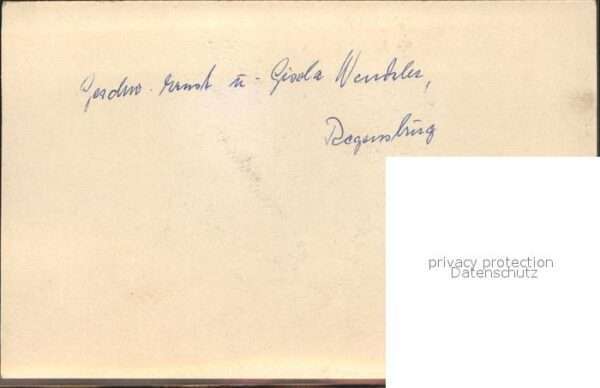 Geschw. Ernst u. Gisela Wentzler,
Regensburg
privacy protection
Datenschutz